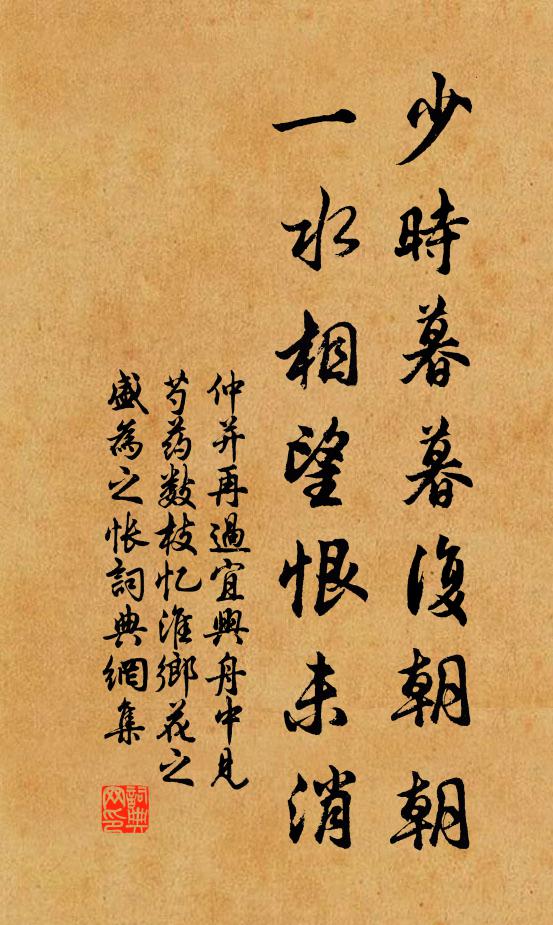 少時暮暮復朝朝
一水相望恨未消
仲并再過宜興舟中見
芍药数枝忆淮鄉花之
盛為之怅詞典網集
詞典
网印